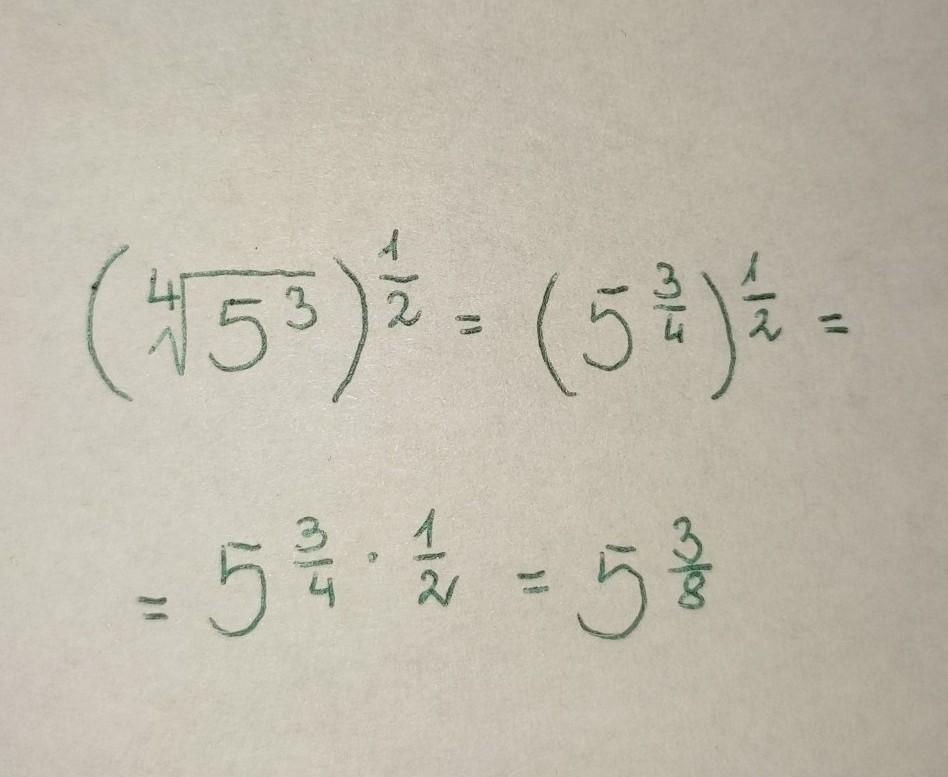 (∜5³)^{1/2} = (5^{3/4})^{1/2} =
= 5^{3/4 · 1/2} = 5^{3/8}